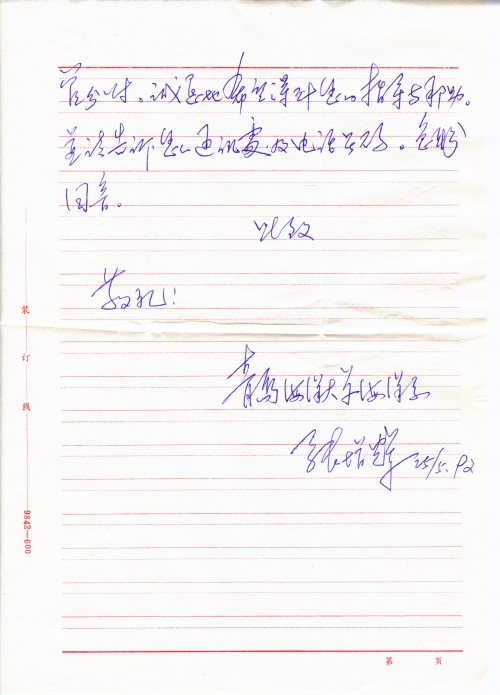 诚恳地希望得到您的指导与帮助。
并请告诉您的通讯处及电话号码。急盼
回音。
此致
敬礼!
青岛海洋大学海洋系
25/5.92
装
订
线
9842—600
第 页